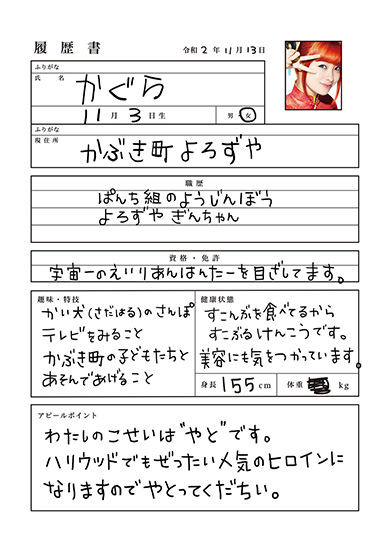 履歴書
令和2年11月13日
ふりがな
氏名 かぐら
11月3日生 男・女
ふりがな
現住所 かぶき町よろずや
職歴
ぱんち組のようじんぼう
よろずや ぎんちゃん
資格・免許
宇宙一のえいりあんはんたーを目ざしてます。
趣味・特技
かい犬(さだはる)のさんぽ
テレビをみること
かぶき町の子どもたちと
あそんであげること
健康状態
すこんぶを食べてるから
すこぶるけんこうです。
美容にも気をつかっています。
身長 155cm 体重 kg
アピールポイント
わたしのこせいは"やと"です。
ハリウッドでもぜったい人気のヒロインに
なりますのでやとってくだちい。